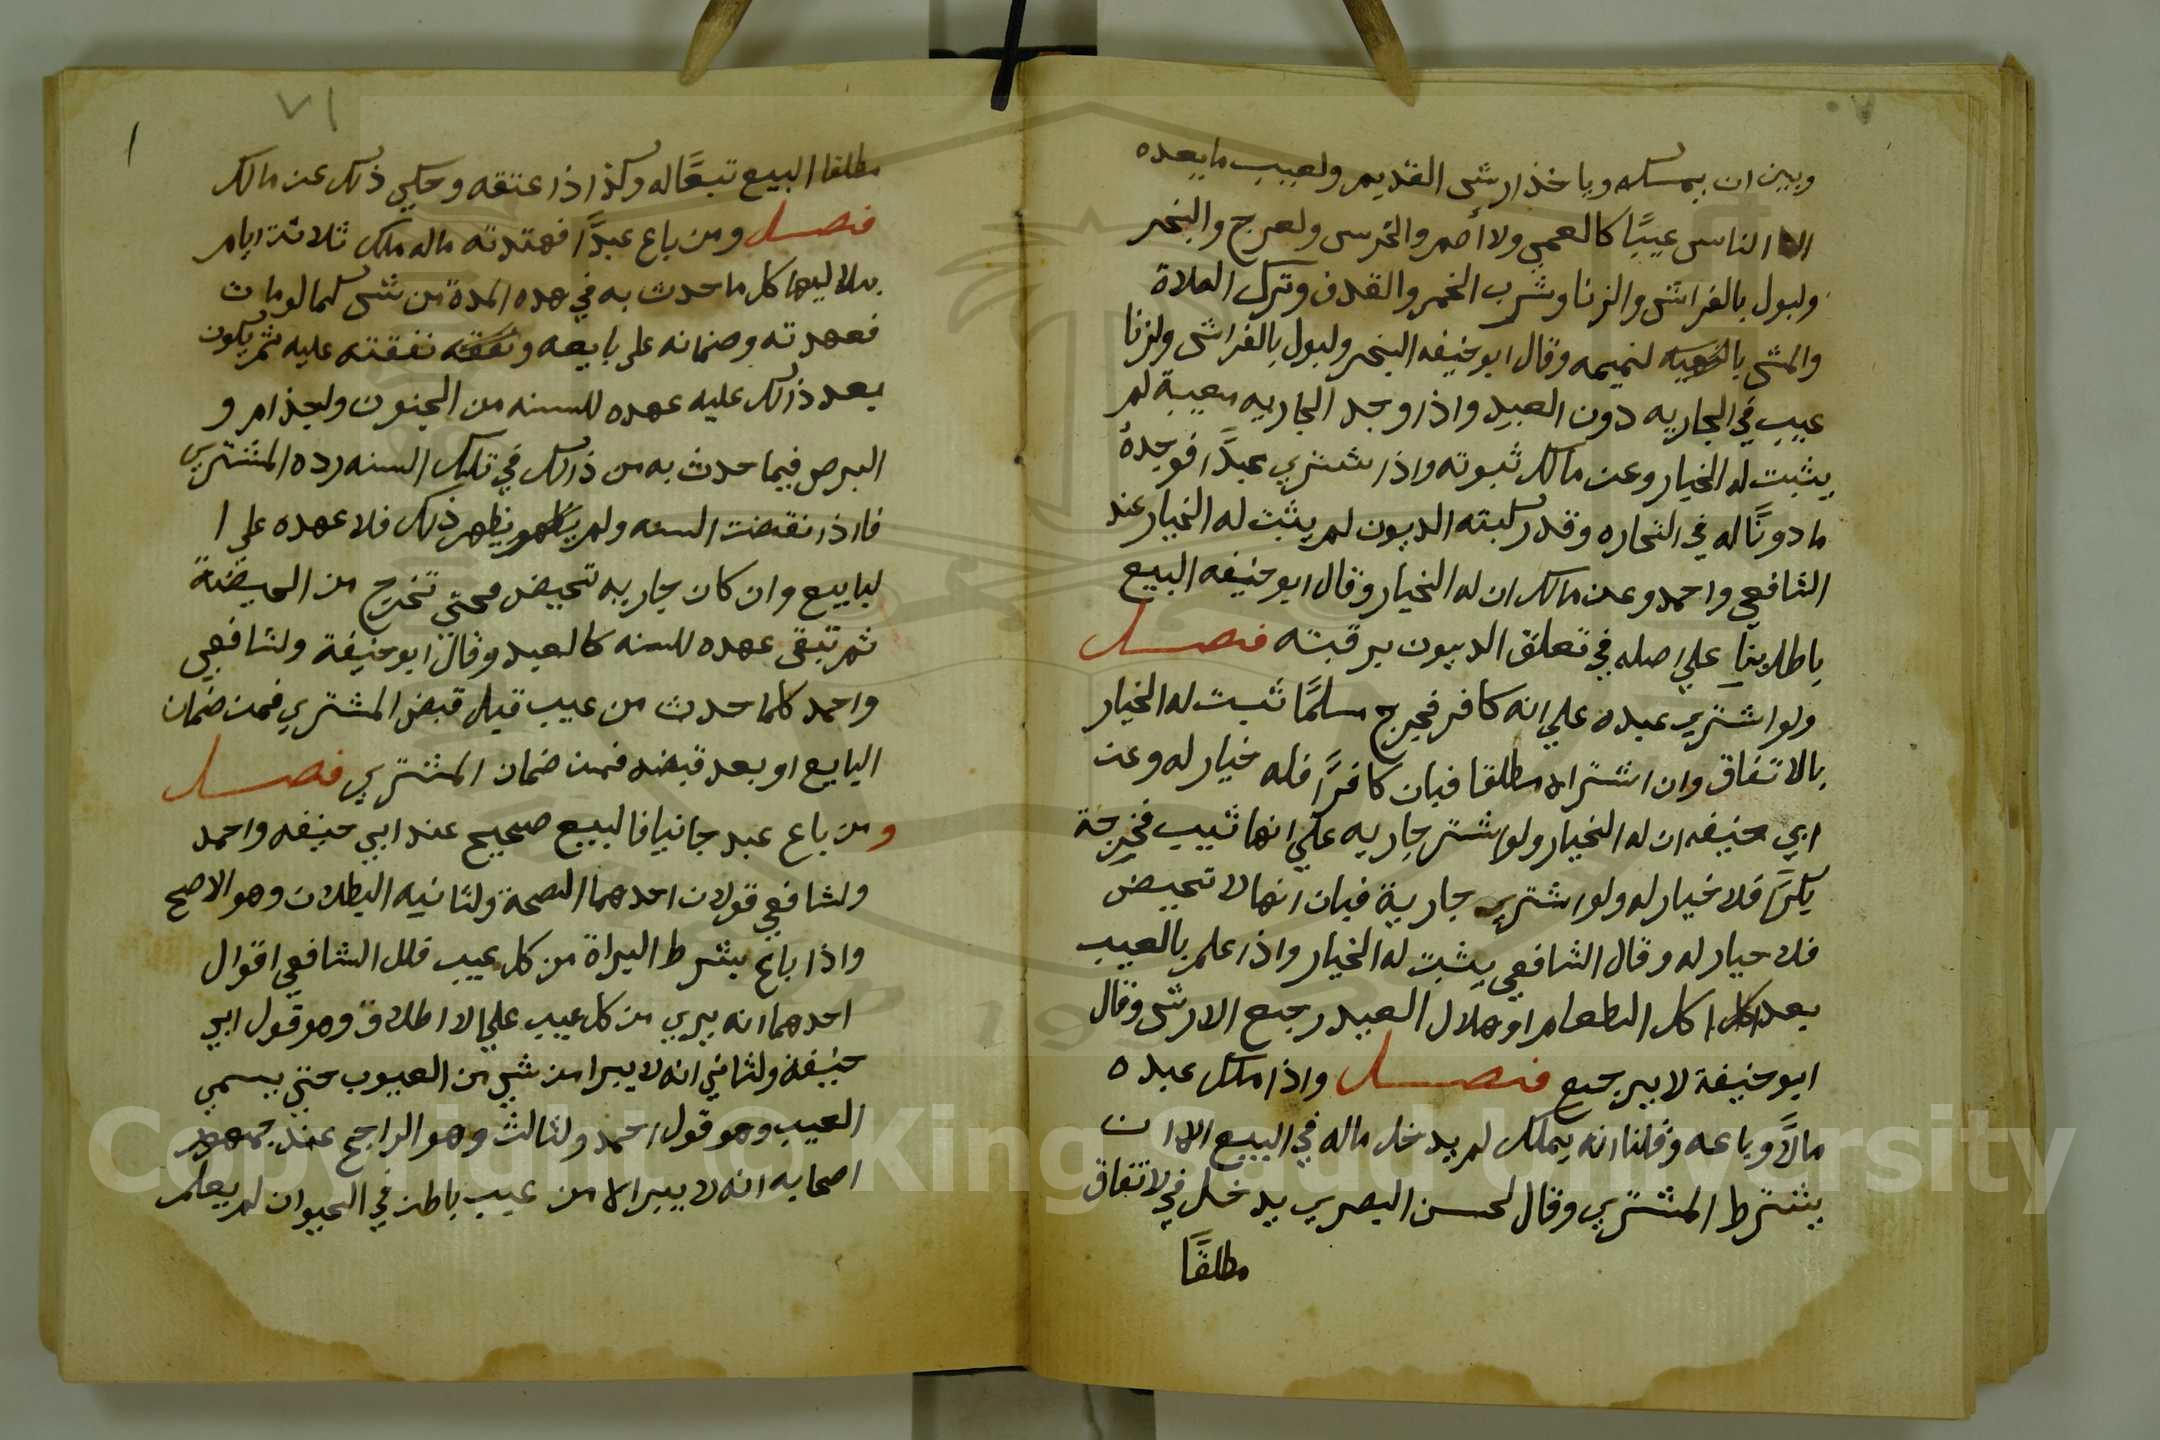 وبين ان يمسكه وياخذ ارش القديم ولعيب ما يعده
الناس عيبًا كالعمي ولا أصم والخرس ولعرج والبخر
ولبول بالفراش والزنا وشرب الخمر والقذف وترك الصلاة
والمشى لنميمه وقال ابو حنيفه البخر ولبول بالفراش ولزنا
عيب في الجاريه دون العبيد واذا وجد الجاريه معيبة لم
يثبت له الخيار وعن مالك ثبوته واذا شتري عبدًا فوجده
ماذونًا له في التجاره وقد ركبته الديون لم يثبت له الخيار عند
الشافعي واحمد وعن مالك ان له الخيار وقال ابو حنيفه البيع
باطل بنا علي اصله في تعلق الديون برقبته فصل
ولو اشتري عبده علي انه كافر فخرج مسلمًا ثبت له الخيار
بالاتفاق وان اشتراه مطلقا فبان كافرًا فله خيار له وعن
ابي حنيفه ان له الخيار ولو اشتر جاريه علي انها ثيب فخرجة
بكرًا فلا خيار له ولو اشتري جارية فبان انها لا تحيض
فلا خيار له وقال الشافعي يثبت له الخيار واذا علم بالعيب
بعد اكل الطعام او هلال العبيد رجع الارش وقال
ابو حنيفة لا يرجع فصل واذا ملك عبده
مالًا وباعه وقلنا انه يملك لم يدخل ماله في البيع الا ان
يشترط المشتري وقال لحسن البصري يدخل في لاتفاق
مطلقًا
٧١
مطلقا البيع تبعًا له وكذا اذا عتقه وحكي ذلك عن مالك
فصل ومن باع عبدًا فعهدته ماله ملك ثلاثة ايام
بلاليها كل ما حدث به في هده المدة من شى كما لو مات
فعهدته وضمانه على بايعه نفقته عليه ثم يكون
بعد ذالك عليه عهده للسنه من الجنون ولجذام و
البرص فيما حدث به من ذالك في تلك السنه رده المشتري
فاذا نقضت السنه ولم يظهر ذلك فلا عهده على ا
لبايع وان كان جاريه تحيض فحتي تخرج من الحيضة
ثم تبقى عهده للسنه كالعبد وقال ابو حنيفة ولشافعي
واحمد كلما حدث من عيب قبل قبض المشتري فمن ضمان
البايع او بعد قبضه فمن ضمان المشتري فصل
ومن باع عبد جانيا فالبيع صحيح عند ابي حنيفه واحمد
ولشافعي قولان احدهما الصحة ولثانيه البطلان وهو الاصح
واذا باع بشرط البراة من كل عيب فلل الشافعي اقوال
احدهما انه يبري من كل عيب علي الاطلاق وهو قول ابي
حنيفه ولثاني انه لا يبرا من شي من العيوب حتي يسمي
العيب وهو قول احمد ولثالث وهو الراجح عند جمهور
اصحابه انه لا يبرا الا من عيب باطن في الحيوان لم يعلم
Copyright © King Saud University